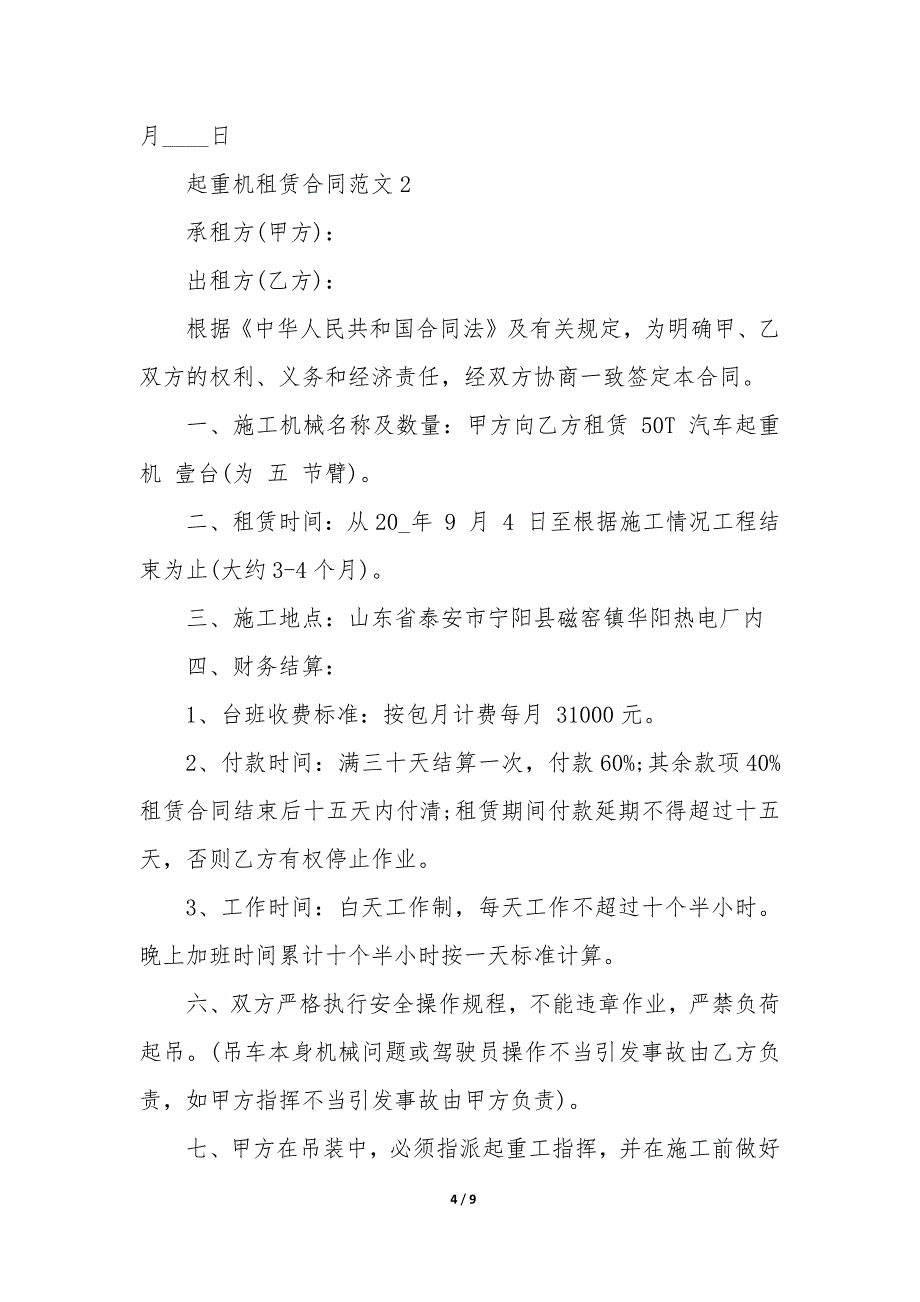 月____日
起重机租赁合同范文2
承租方(甲方)：
出租方(乙方)：
根据《中华人民共和国合同法》及有关规定，为明确甲、乙
双方的权利、义务和经济责任，经双方协商一致签定本合同。
一、施工机械名称及数量：甲方向乙方租赁 50T 汽车起重
机 壹台(为 五 节臂)。
二、租赁时间：从20_年 9 月 4 日至根据施工情况工程结
束为止(大约3-4个月)。
三、施工地点：山东省泰安市宁阳县磁窑镇华阳热电厂内
四、财务结算：
1、台班收费标准：按包月计费每月 31000元。
2、付款时间：满三十天结算一次，付款60%;其余款项40%
租赁合同结束后十五天内付清;租赁期间付款延期不得超过十五
天，否则乙方有权停止作业。
3、工作时间：白天工作制，每天工作不超过十个半小时。
晚上加班时间累计十个半小时按一天标准计算。
六、双方严格执行安全操作规程，不能违章作业，严禁负荷
起吊。(吊车本身机械问题或驾驶员操作不当引发事故由乙方负
责，如甲方指挥不当引发事故由甲方负责)。
七、甲方在吊装中，必须指派起重工指挥，并在施工前做好
4 / 9